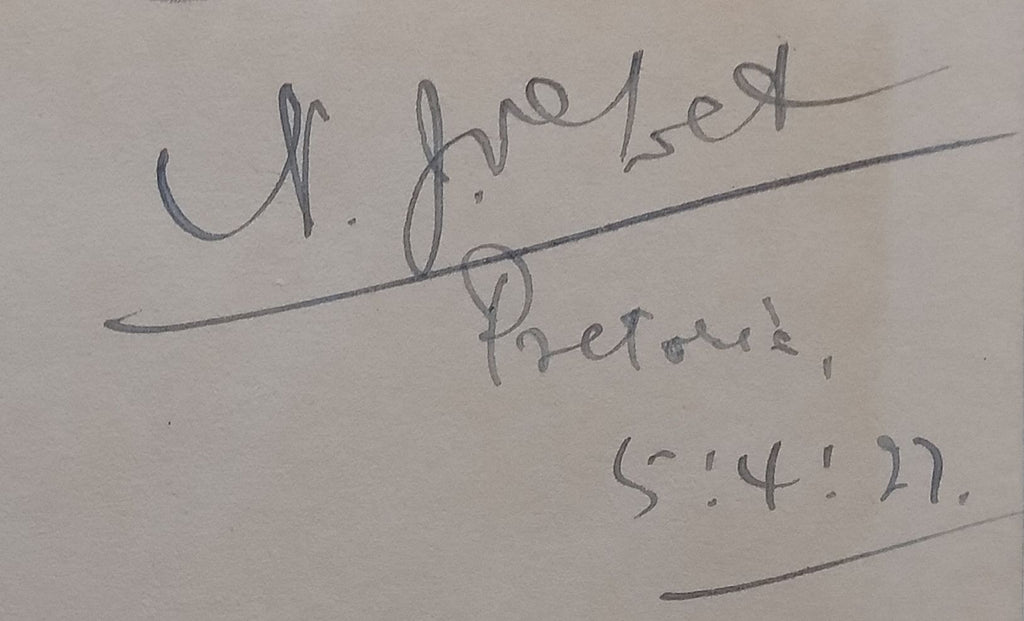 N. J. de Wet
Pretoria,
5:4:27.